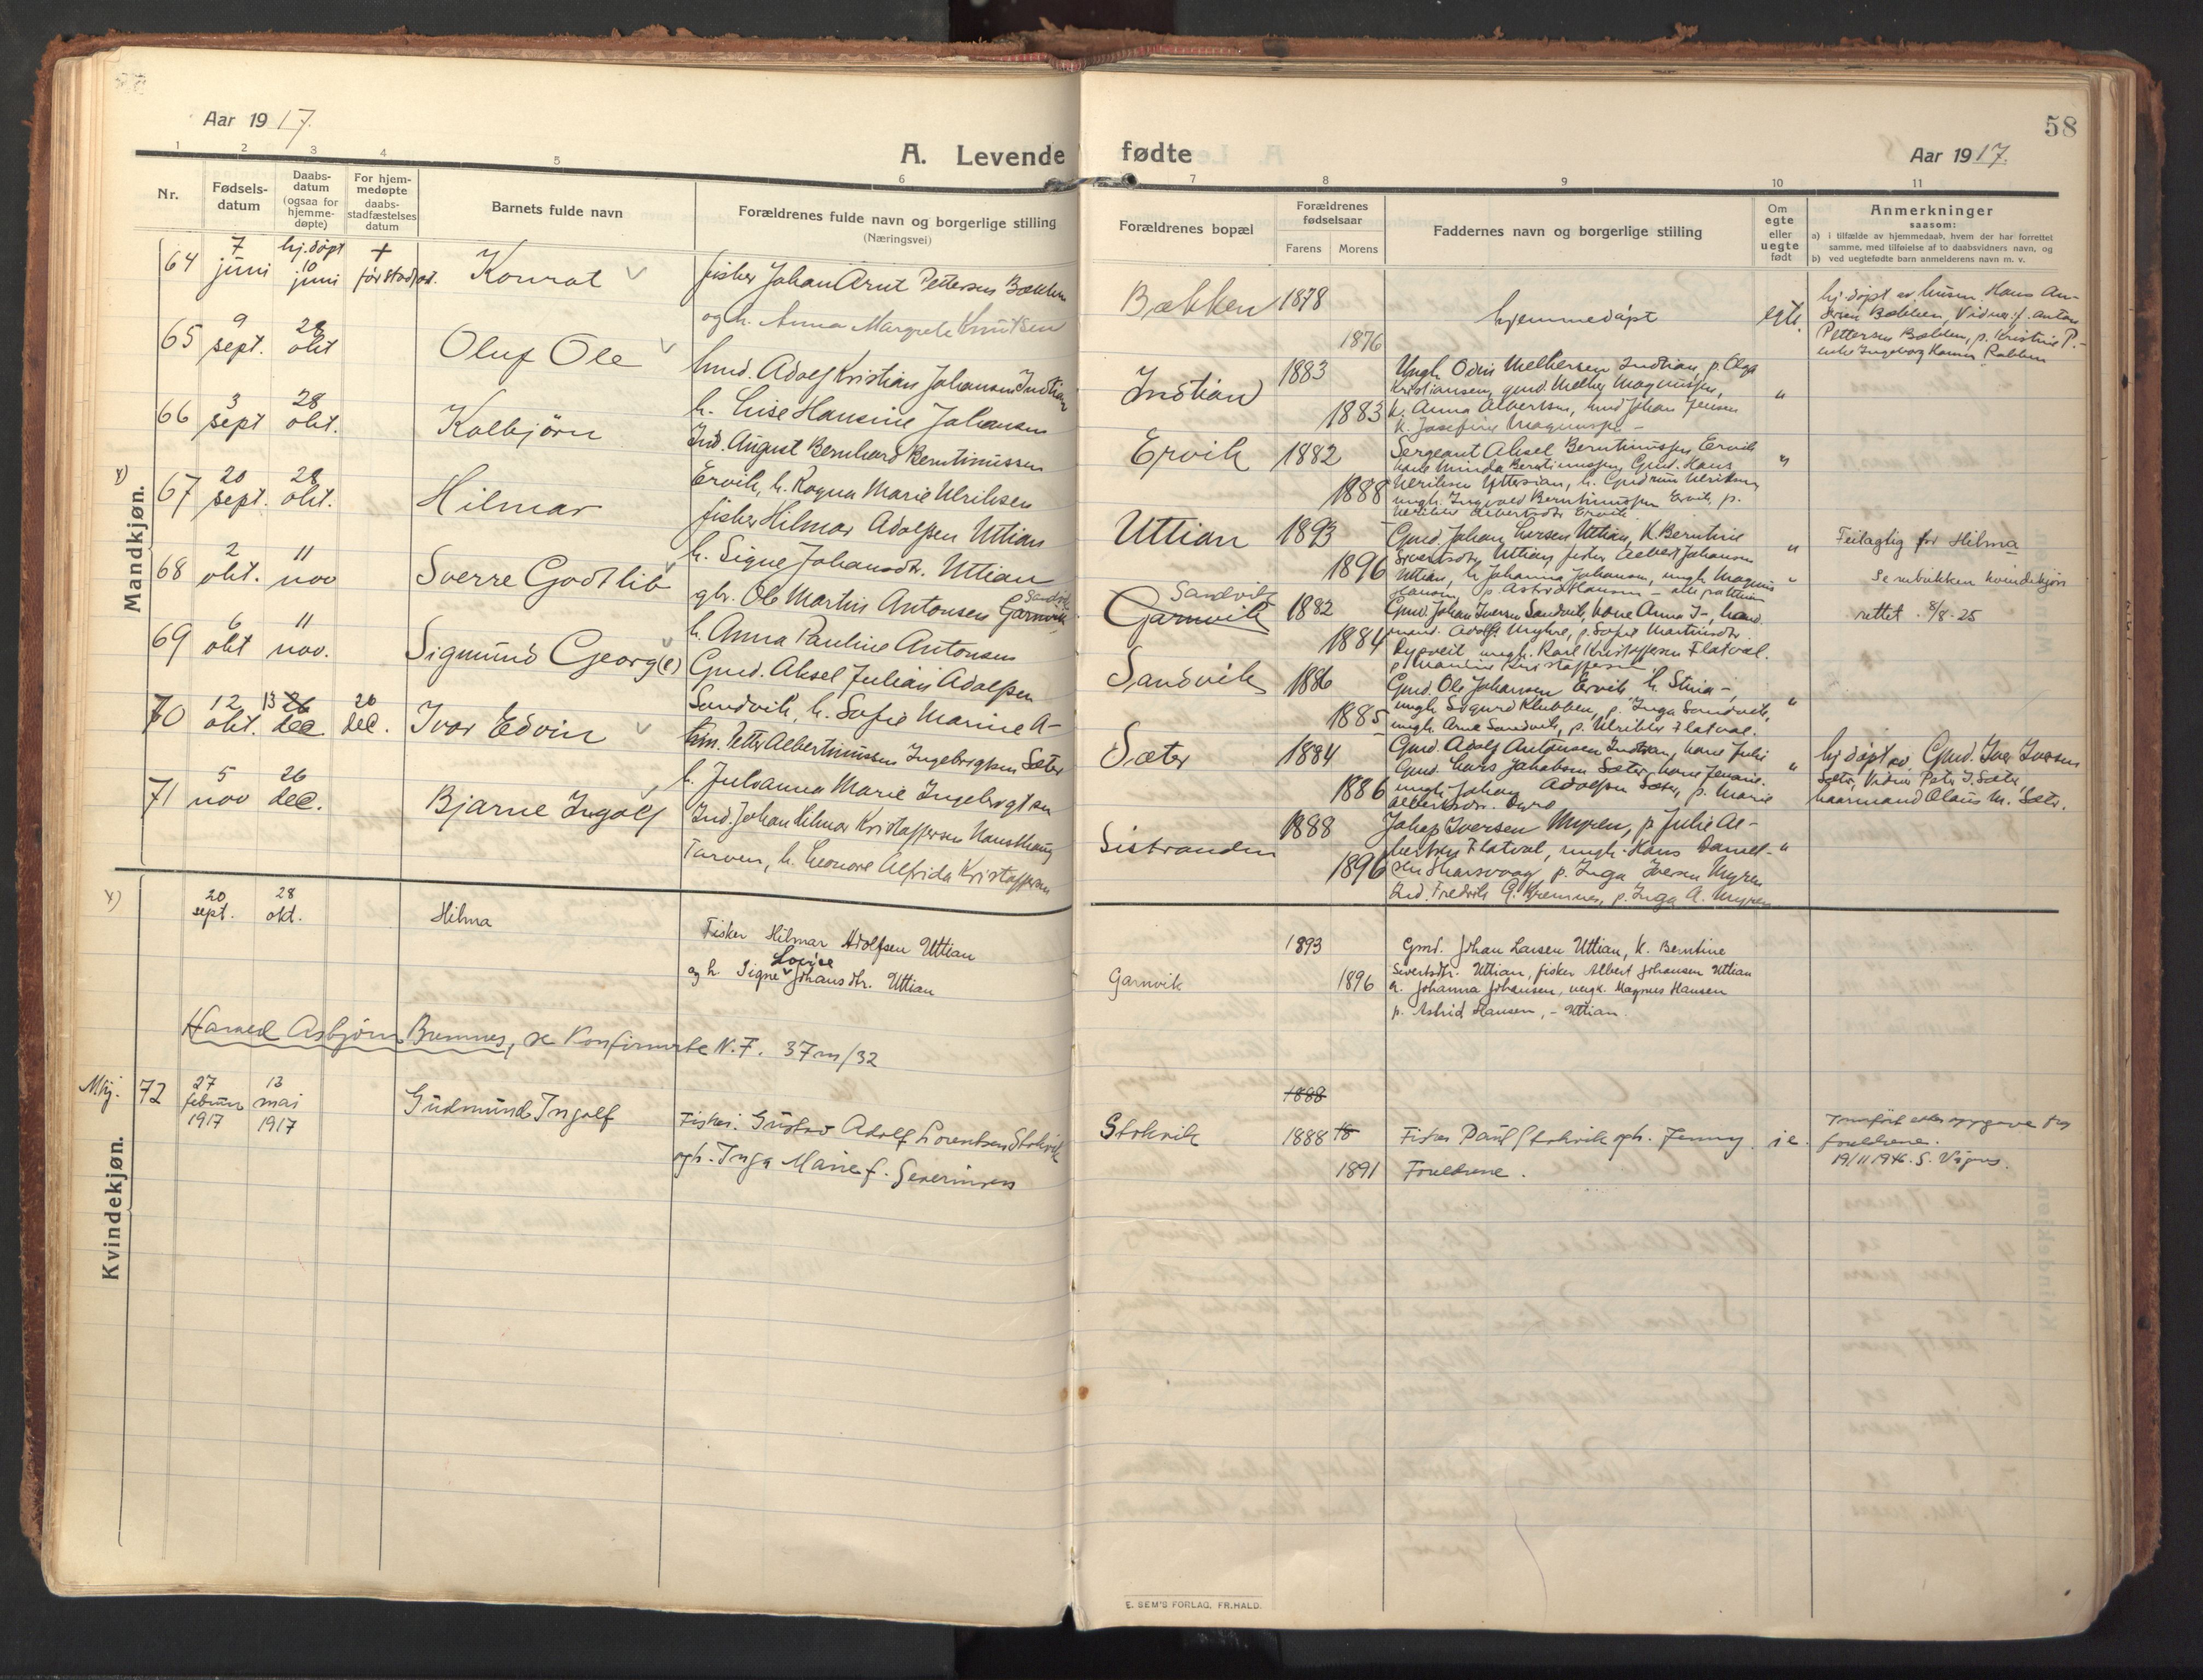 Aar 1917.
A. Levende
1 2 3 4 5 6
Nr.
Fødsels-
datum
Daabs-
datum
(ogsaa for
hjemme-
døpte)
For hjem-
medøpte
daabs-
stadfæstelses
datum
Barnets fulde navn
Forældrenes fulde navn og borgerlige stilling
(Næringsvei)
Mandkjøn.
64 7 juni hj. døpt 10 juni + før stadf. Konrat
fisker Johan Arnt Pettersen Bækken
og h. Anna Margrete Knutsen
65 9 sept. 28 okt Oluf Ole
Gmd. Adolf Kristian Johansen Indtian
h. Lise Hansine Johansen
66 3 sept 28 okt. Kolbjørn
Ind. August Bernhard Berntinussen
Ervik, h. Ragna Marie Ulriksen
x) 67 20 sept. 28 okt. Hilmar
fisker Hilmar Adolfsen Uttian
h. Signe Johansdtr. Uttian
68 2 okt. 11 nov Sverre Godtlib
gbr. Ole Martin Antonsen Garnvik Sandvik
h. Anna Pauline Antonsen
69 6 okt 11 nov. Sigmund Georg(e)
Gmd. Aksel Julian Adolfsen
Sandvik, h. Sofie Marine A-
70 12 okt. 13 26 dec 26 dec. Ivar Edvin
Petter Albertinussen Ingebrigtsen Sæter
h. Julianna Marie Ingebrigtsen
71 5 nov 26 dec. Bjarne Ingolf
Ind. Johan Hilmar Kristoffersen
h. Leonore Alfrida Kristoffersen
x) 20 sept. 28 okt. Hilma
Fisker Hilmar Adolfsen Uttian
og h. Signe Lovise Johansdtr. Uttian
Harved Asbjørn Bremnes, se Konfirmerte N.F. 37 m/32
Kvindekjøn.
M.kj. 72 27 februar 1917 13 mai 1917 Gudmund Ingolf
Fisker: Gustav Adolf Lorentsen Stokvik
og h. Inga Marie f. Severinsen
58
fødte
Aar 1917.
7 8 9 10 11
Forældrenes bopæl
Forældrenes
fødselsaar
Farens Morens
Faddernes navn og borgerlige stilling
Om
egte
eller
uegte
født
Anmerkninger
saasom:
a) i tilfælde av hjemmedaab, hvem der har forrettet
samme, med tilføielse af to daabsvidners navn, og
b) ved uegtefødte barn anmelderens navn m. v.
Bækken 1878 1876 hjemmedøpt egte.
hj. døpt av husm. Hans An-
Bækken, Vidner: f. Anton
Pettersen Bækken, p. Kristine P.-
enke Ingeborg
Indtian 1883 1883
Ungk. Odin Melkersen Indtian, p. Olga
Kristiansen, gmd. Melker Magnussen, "
k. Anna Albertsen, Gmd Johan Jensen
k. Josefine Magnussen -
Ervik 1882 1888
Sergeant Aksel Berntinussen Ervik
kone Minda Berntinussen, Gmd. Hans "
Ulriksen Yttersian, h. Gudrun Ulriksen
ungk. Ingvald Berntinussen Ervik, p.
Ulrikke Albertsdtr Ervik.
Uttian 1893 1896
Gmd. Johan Larsen Uttian, K. Berntine
Sivertsdtr. Uttian, fisker Albert Johansen "
Uttian, h. Johanna Johansen, ungk. Magnus
Hansen, p. Astrid Hansen - alle fra Uttian
Feilagtig for Hilma
Se rubrikken kvindekjøn
rettet 8/8-25
Sandvik
Garnvik 1882 1884
Gmd. Johan Iversen Sandvik, kone Anna J-,
Adolf Myhre, p. Sofie Martinsdtr. "
ungk. Karl Kristoffersen Flatval.
Sandvik 1886 1885
Gmd. Ole Johansen Ervik, h. Stina -, "
ungk. Sigurd Klubben, p. Inga Sandvik,
ungk. Arne Sandvik, p. Ulrikke Flatval.
Sæter 1884 1886
Gmd. Adolf Antonsen Indtian, kone Julie "
Gmd. Lars Jakobsen Sæter, kone
ungk. Johan Adolfsen Sæter, p. Marie
Albertsdtr.
hj. døpt av Gmd. Iver Iversen
Sæter, Vidner Peter I. Sæter,
haarmand Olaus M. Sæter.
Sistranden 1888 1896
Iversen Myren, p. Julie Al-
bertsen Flatval, ungk. Hans Daniel- "
sen p. Inga Iversen Myren
Ind. Fredrik G. Kremnes, p. Inga A. Myren
Garnvik 1893 1896
Gmd. Johan Larsen Uttian, K. Berntine
Sivertsdtr. Uttian, fisker Albert Johansen Uttian
h. Johanna Johansen, ungk. Magnus Hansen
p. Astrid Hansen, - Uttian.
1888
Stokvik 1888 18 1891
Fisker Paul Stokvik og h. Jenny.
Foreldrene.
Innført etter oppgave fra
foreldrene.
19/11 1946. S. Vågnes.
E. SEM'S FORLAG, FR.HALD.